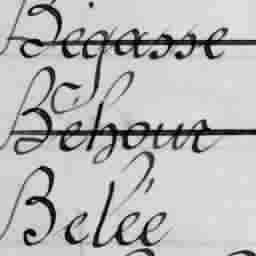 Bégasse
Béhour
Belée